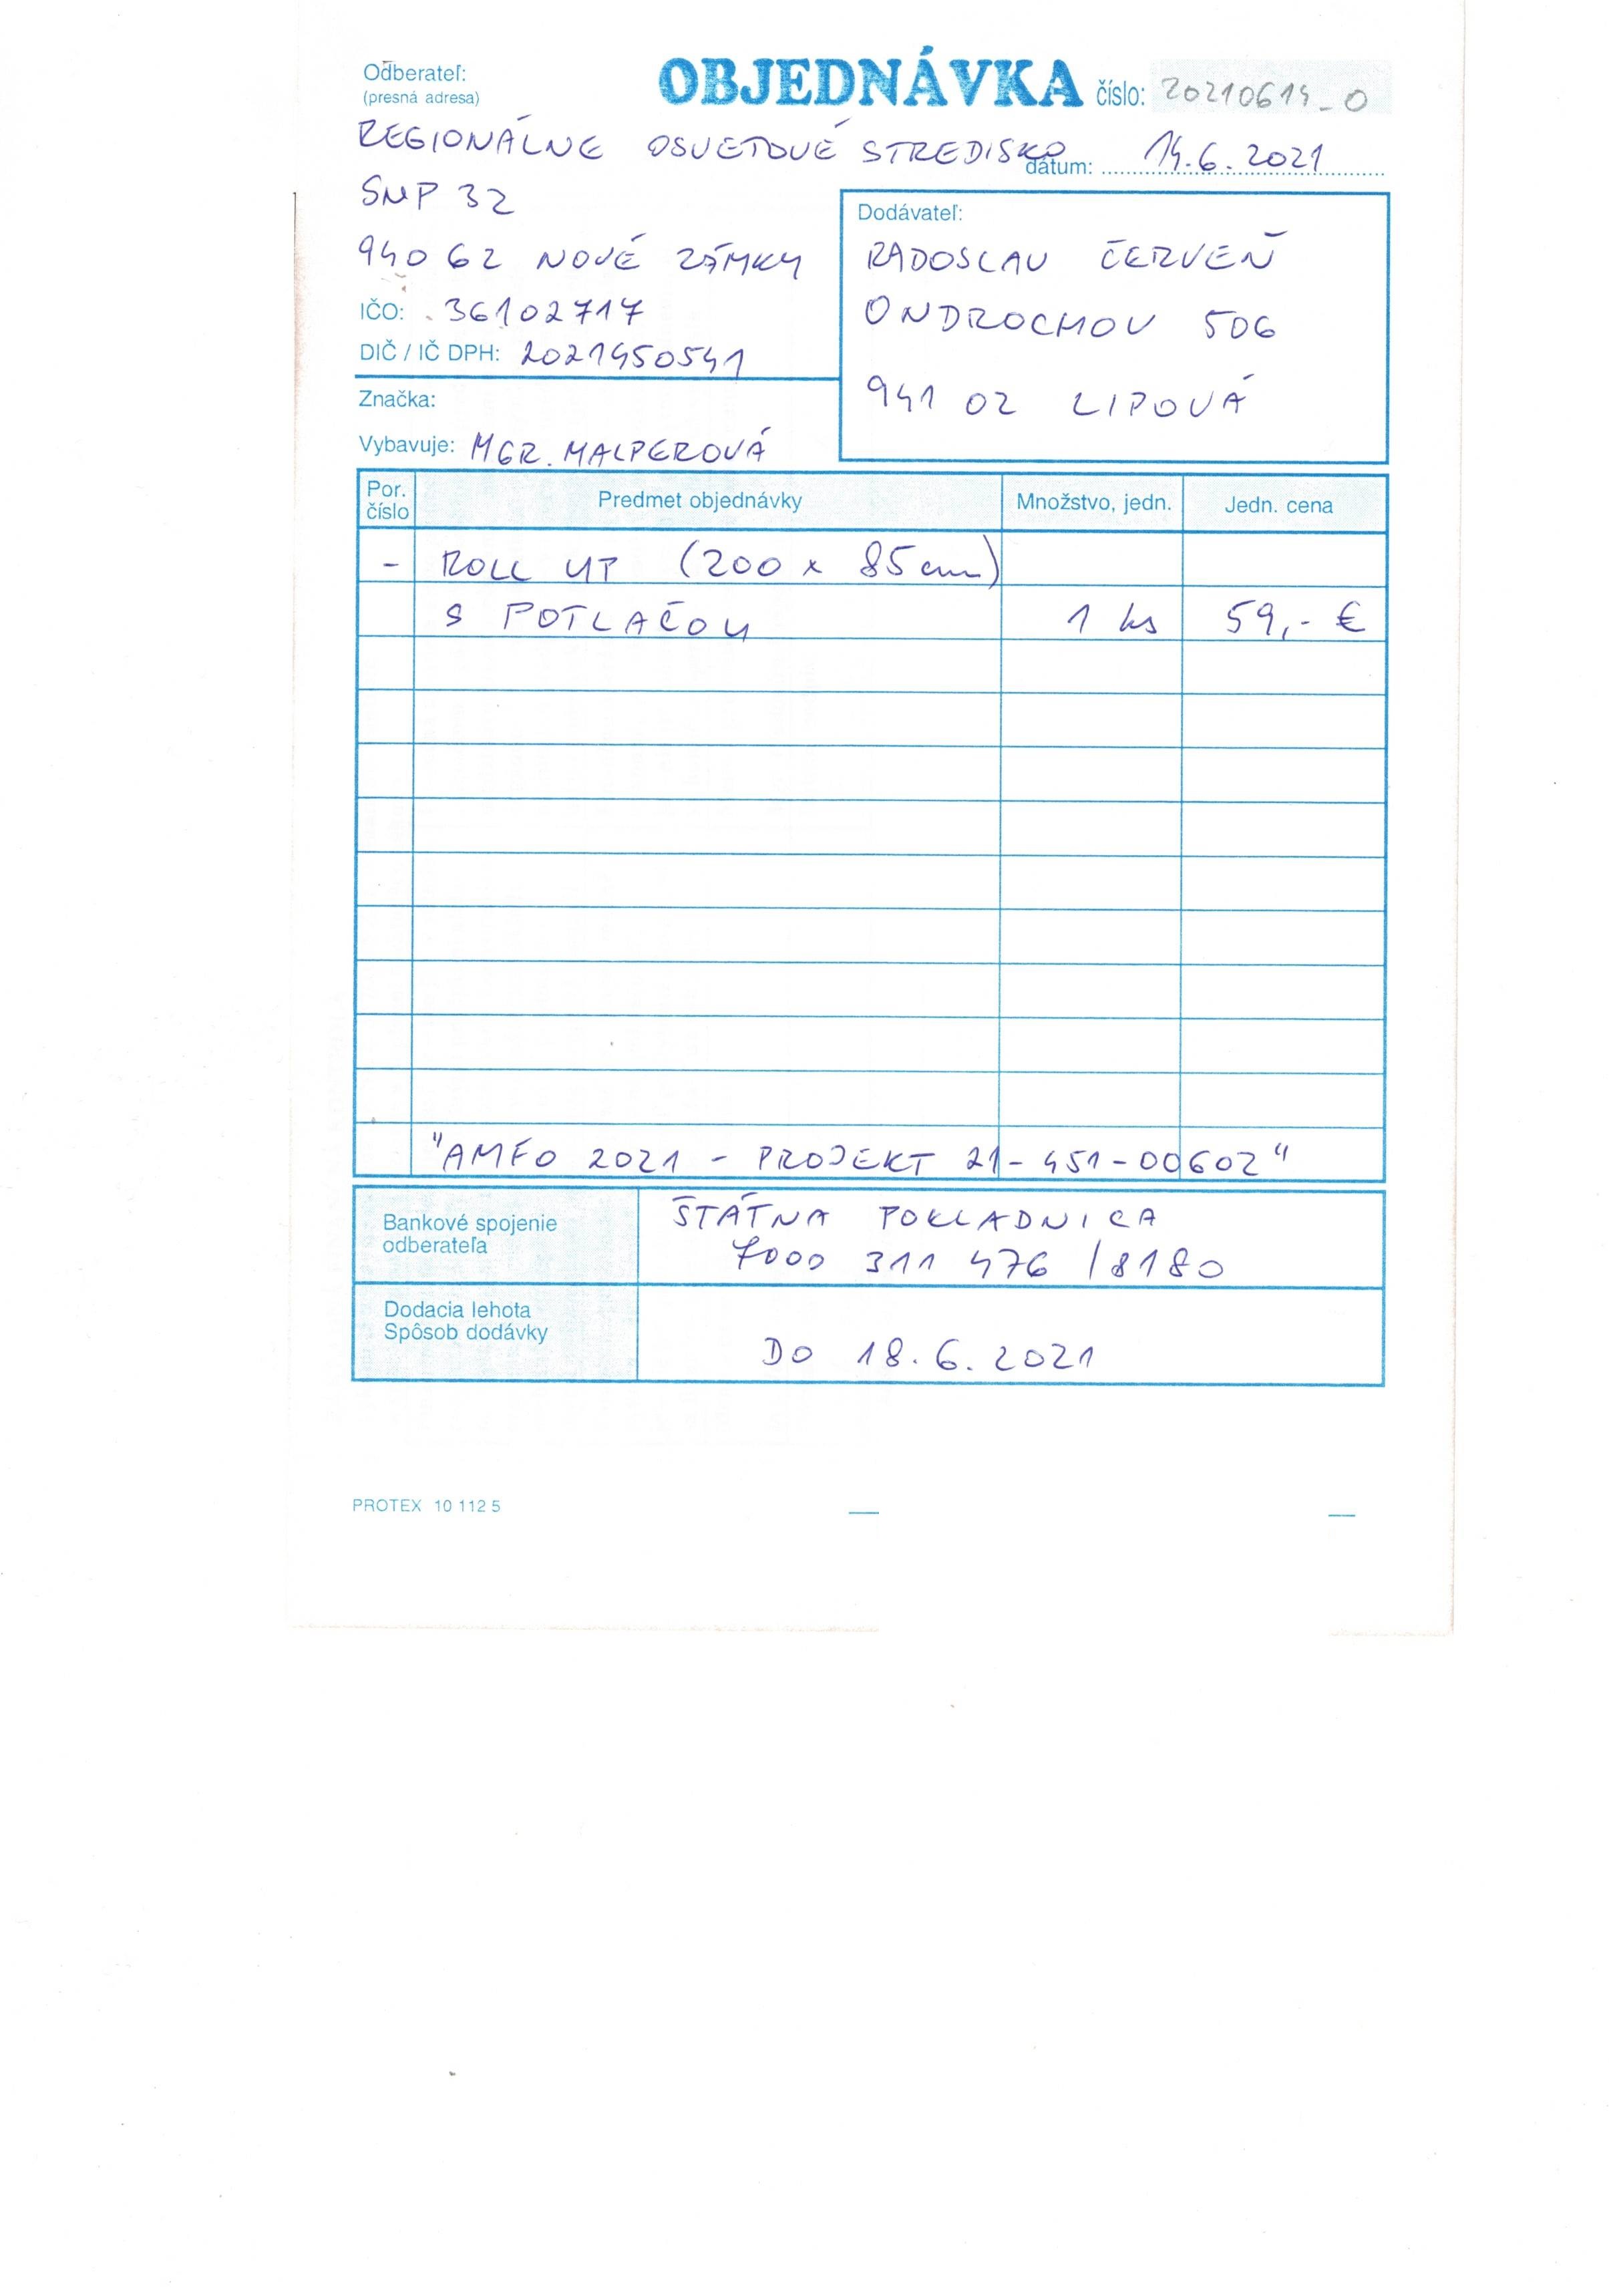 Odberateľ:
(presná adresa)
OBJEDNÁVKA číslo: 20210614_0
REGIONÁLNE OSVETOVÉ STREDISKO
dátum: 14.6.2021
SNP 32
940 62 NOVÉ ZÁMKY
IČO: 36102717
DIČ / IČ DPH: 2021450541
Značka:
Vybavuje: MGR. MALPEROVÁ
Dodávateľ:
RADOSLAV ČERVEŇ
ONDROCHOV 506
941 02 LIPOVÁ
Por. číslo Predmet objednávky Množstvo, jedn. Jedn. cena
- ROLL UP (200 x 85 cm)
S POTLAČOU 1 ks 59,- €
"AMFO 2021 - PROJEKT 21-451-00602"
Bankové spojenie
odberateľa
ŠTÁTNA POKLADNICA
7000 311 476 /8180
Dodacia lehota
Spôsob dodávky
DO 18.6.2021
PROTEX 10 112 5